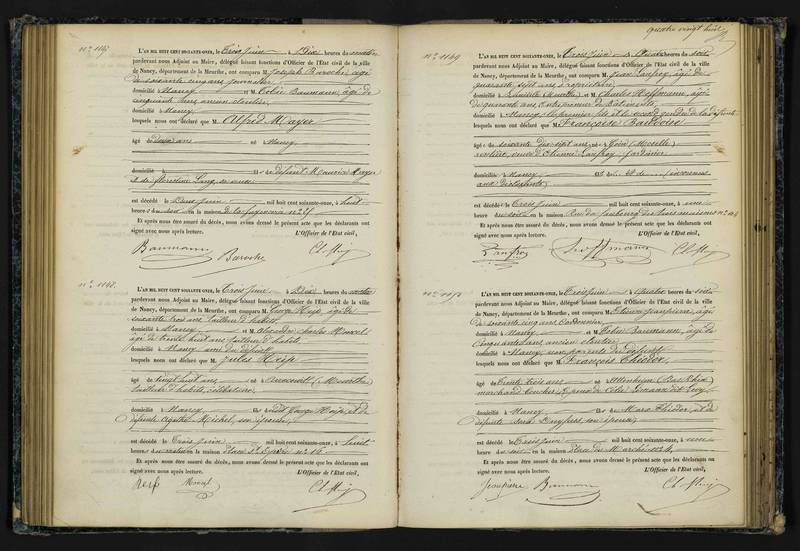 n° 1147
L'AN MIL HUIT CENT SOIXANTE-ONZE, le Trois Juin à Dix heures du matin
pardevant nous Adjoint au Maire, délégué faisant fonctions d'Officier de l'Etat civil de la ville
de Nancy, département de la Meurthe, ont comparu M. Joseph Baroche âgé
de soixante cinq ans journalier
domicilié à Nancy et M. Felix Baumann, âgé de
cinquante ans ancien cloutier
domicilié à Nancy
lesquels nous ont déclaré que M. Alfred Mayer
âgé de deux ans né à Nancy
domicilié à fils de défunt Maurice Mayer
et de Florentine Lang, sa veuve
est décédé le Deux Juin mil huit cent soixante-onze, à huit
heures du soir en la maison de la
Et après nous être assuré du décès, nous avons dressé le présent acte que les déclarants ont
signé avec nous après lecture. L'Officier de l'Etat civil,
Baumann Baroche
n° 1148
L'AN MIL HUIT CENT SOIXANTE-ONZE, le Trois Juin à Dix heures du matin
pardevant nous Adjoint au Maire, délégué faisant fonctions d'Officier de l'Etat civil de la ville
de Nancy, département de la Meurthe, ont comparu M. George âgé de
soixante trois ans tailleur d'habits
domicilié à Nancy et M. Alexandre Charles
âgé de trente huit ans tailleur d'habits
domicilié à Nancy ami du défunt
lesquels nous ont déclaré que M. Jules
âgé de vingt huit ans né à (Meurthe)
tailleur d'habits, célibataire,
domicilié à Nancy fils de dit George et de
défunte Agathe Michel, son épouse
est décédé le Trois Juin mil huit cent soixante-onze, à huit
heures du matin en la maison Place St Epvre n° 16
Et après nous être assuré du décès, nous avons dressé le présent acte que les déclarants ont
signé avec nous après lecture. L'Officier de l'Etat civil,
quatre vingt huit
n° 1149
L'AN MIL HUIT CENT SOIXANTE-ONZE, le Trois Juin à Quatre heures du soir
pardevant nous Adjoint au Maire, délégué faisant fonctions d'Officier de l'Etat civil de la ville
de Nancy, département de la Meurthe, ont comparu M. Jean Lanfroy, âgé de
quarante sept ans, propriétaire
domicilié à et M. Charles Hoffmann, âgé
de quarante ans Entrepreneur de Bâtiments
domicilié à Nancy le premier fils et le second gendre de la défunte
lesquels nous ont déclaré que M. Françoise Bardoise
âgée de soixante dix sept ans née à Goin (Moselle)
rentière, veuve d'Etienne Lanfroy jardinier
domicilié à Nancy fille de
aux déclarants
est décédé le Trois Juin mil huit cent soixante-onze, à une
heure du soir en la maison Rue du faubourg des trois maisons n° 44
Et après nous être assuré du décès, nous avons dressé le présent acte que les déclarants ont
signé avec nous après lecture. L'Officier de l'Etat civil,
Lanfroy Hoffmann
L'AN MIL HUIT CENT SOIXANTE-ONZE, le Trois Juin à Quatre heures du soir
pardevant nous Adjoint au Maire, délégué faisant fonctions d'Officier de l'Etat civil de la ville
de Nancy, département de la Meurthe, ont comparu M. Etienne Jeanpierre, âgé
de soixante cinq ans Cordonnier
domicilié à Nancy et M. Felix Baumann, âgé de
Cinquante ans ancien cloutier
domicilié à Nancy, non parents du défunt
lesquels nous ont déclaré que M. François Thiodor
âgé de trente trois ans né à Ottenheim (Bas Rhin)
marchand boucher, Epoux de
domicilié à Nancy fils de Marc Thiodor, et de
défunte son épouse
est décédé le Trois Juin mil huit cent soixante-onze, à une
heure du soir en la maison Place du Marché n° 4
Et après nous être assuré du décès, nous avons dressé le présent acte que les déclarants ont
signé avec nous après lecture. L'Officier de l'Etat civil,
Jeanpierre Baumann